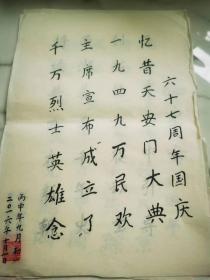 六十七周年国庆
忆昔天安门大典
一九四九万民欢
主席宣布成立了
千万烈士英雄念
丙申年九月初一
二〇一六年十月一日